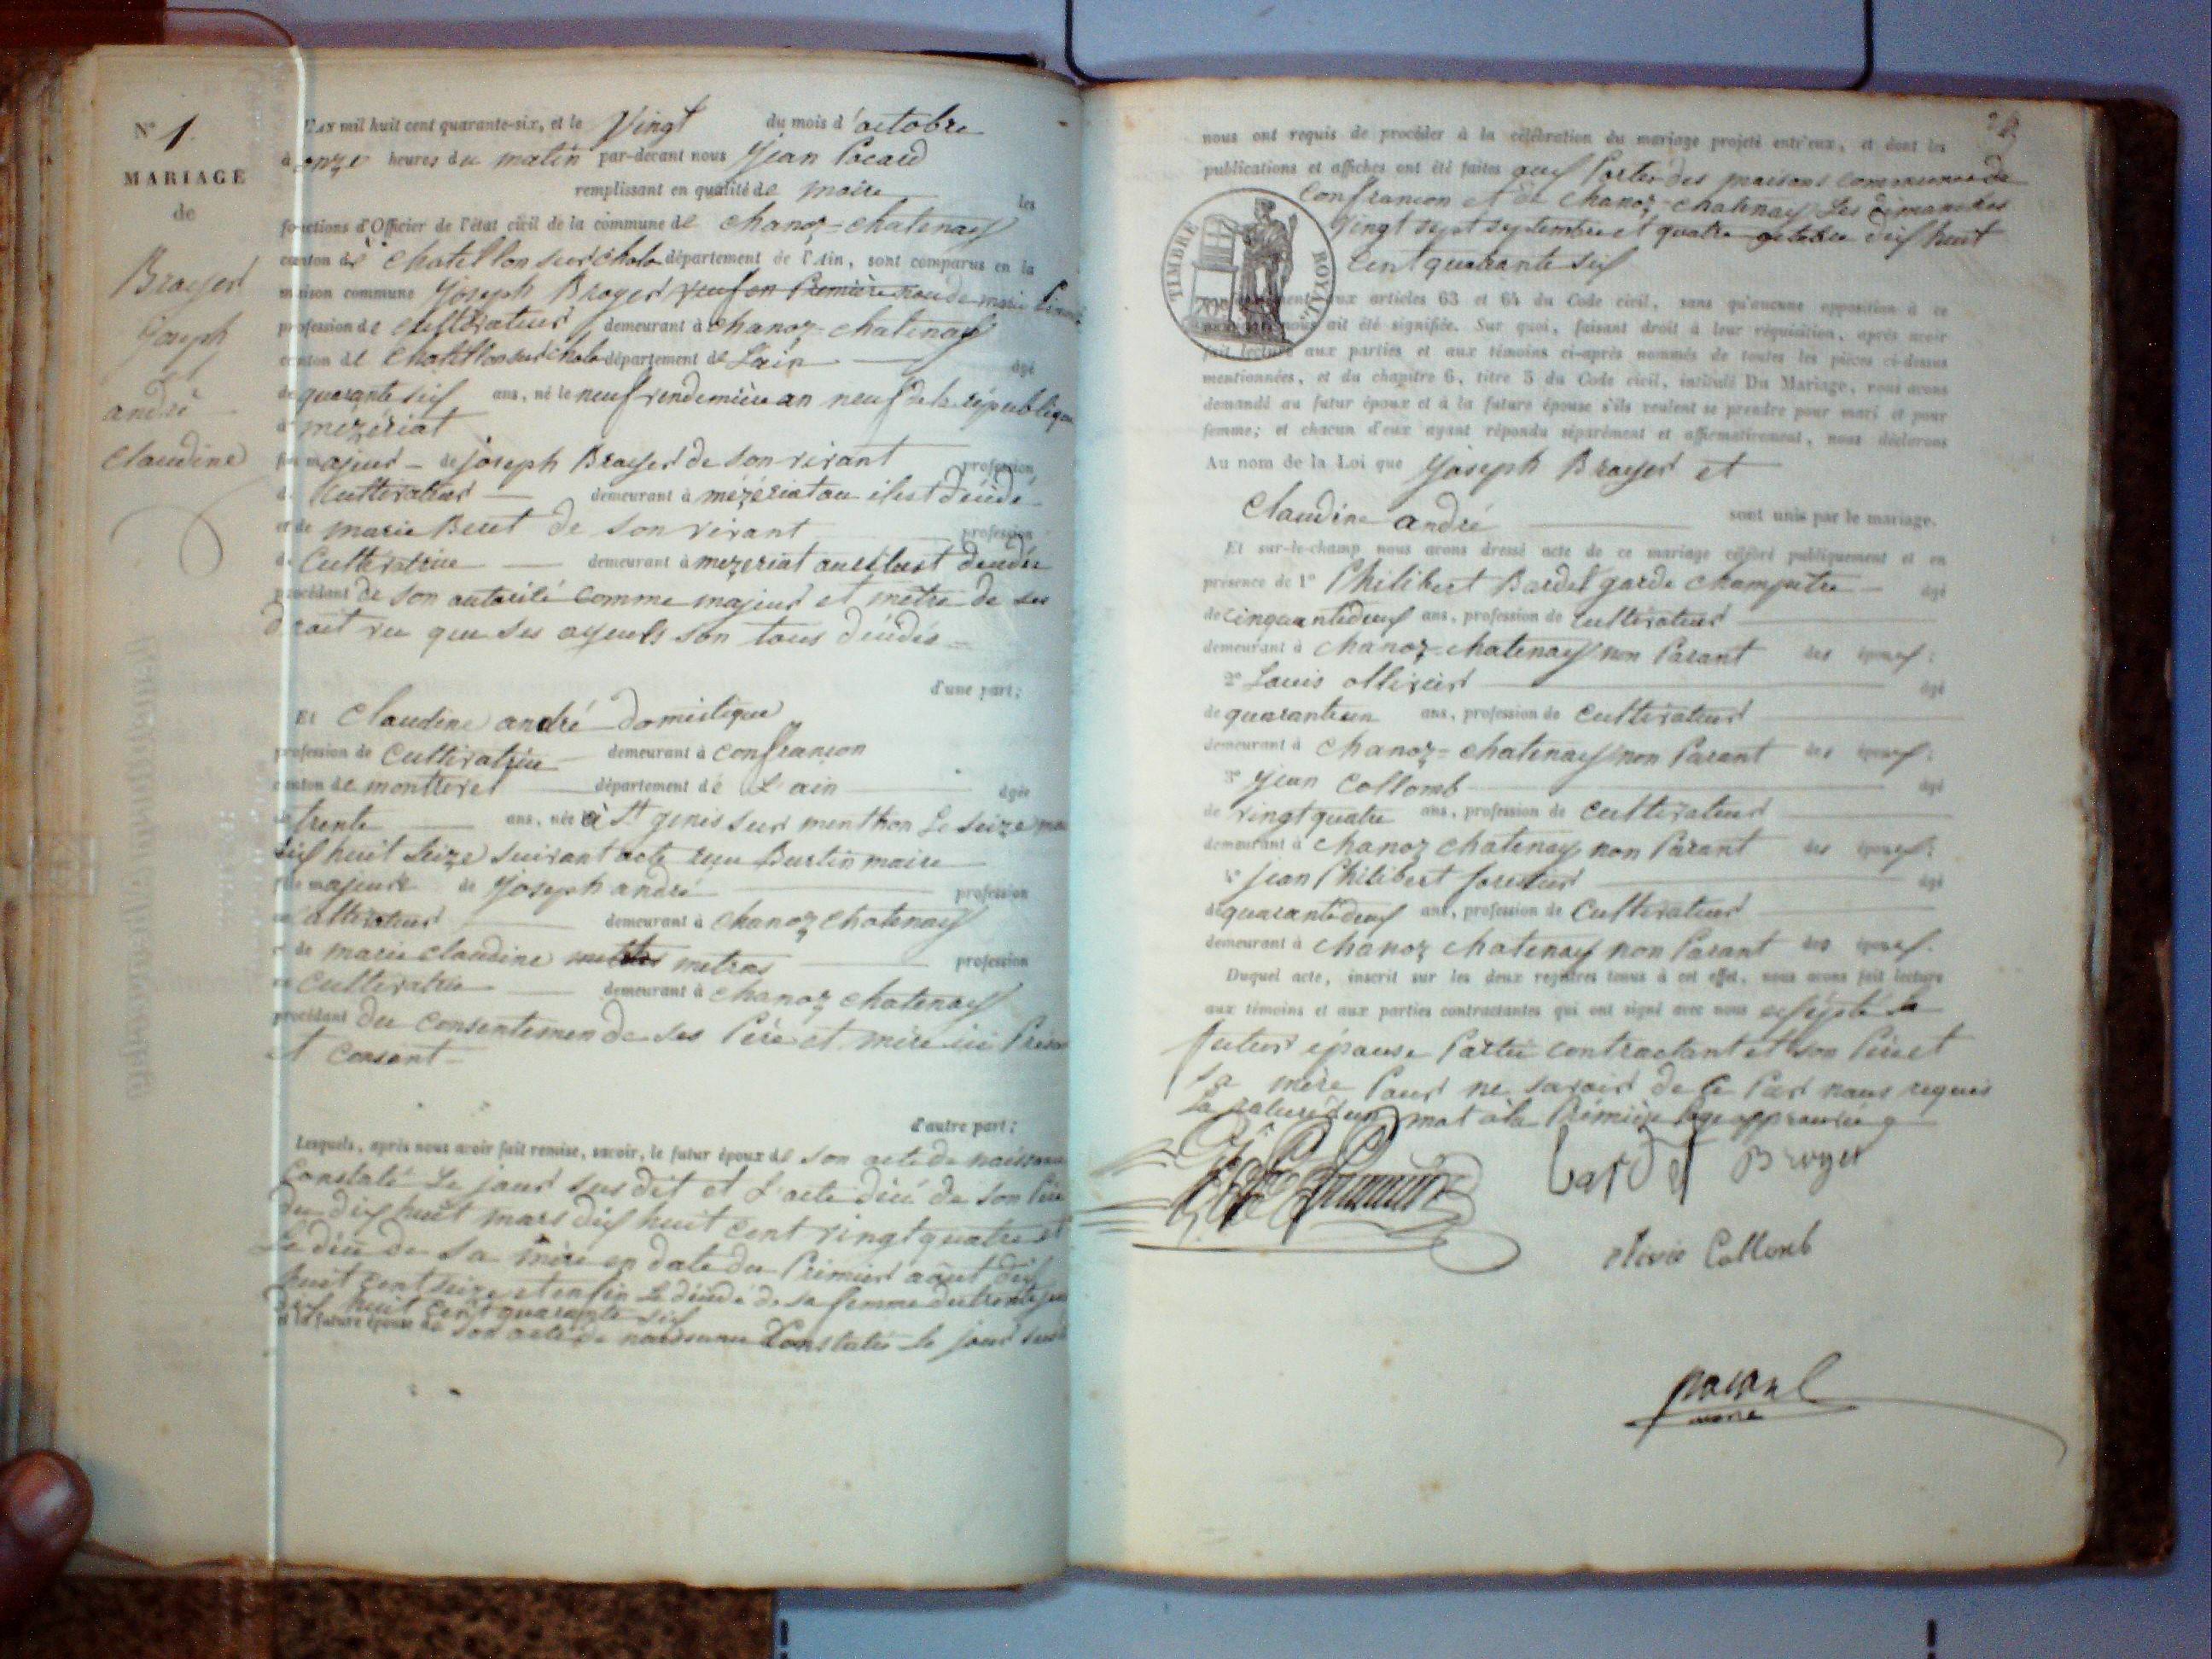 N° 1.
MARIAGE
de
Broyer
Joseph
andré
claudine
L'an mil huit cent quarante-six, et le Vingt du mois d'octobre
à onze heures du matin par-devant nous Jean Pocard
remplissant en qualité de maire les
fonctions d'Officier de l'état civil de la commune de chanoz-chatenay
canton de chatillon sur chala département de l'Ain, sont comparus en la
maison commune Joseph Broyer veuf en Première noude marie
profession de cultivateur demeurant à chanoz-chatenay
canton de chatillon sur chala département de Lain âgé
de quarante six ans, né le neuf vendemière an neuf de la république
à mezériat
fils majeur de joseph Broyer de son vivant profession
de Cultivateur demeurant à mézériat ou il est décédé
et de marie Beret de son vivant profession
de Cultivatrice demeurant à mezeriat au est décédée
procédant de son autorité comme majeur et mètre de ses
droit vu que ses ayeuls son tous décédés
d'une part;
Et Claudine andré domestique
profession de Cultivatrice demeurant à confrançon
canton de montrevel département de L'ain âgée
de trente ans, née à St genis sur menthon Le seize
dix huit seize suivant acte reçu Burtin maire
fille majeure de Joseph andré profession
de Cultivateur demeurant à chanoz chatenay
et de marie claudine metras profession
de Cultivatrice demeurant à chanoz chatenay
procédant du consentemen de ses Père et mère ici
et consant
d'autre part;
Lesquels, après nous avoir fait remise, savoir, le futur époux de son acte de naissance
constaté Le jour sus dit et L'acte décé de son Père
du dix huit mars dix huit cent vingt quatre et
Le décé de sa mère en date du Premier août dix
huit cent seize et enfin Le décédé de sa femme du trente
dix huit cent quarante six
et la future épouse de son acte de naissance Constatée le jour sus
nous ont requis de procéder à la célébration du mariage projeté entr'eux, et dont les
publications et affiches ont été faites aux Portes des maisons communes de
Confrancon et de chanoz-chatenay Les dimanches
Vingt sept septembre et quatre octobre dix huit
cent quarante six
TIMBRE ROYAL
aux articles 63 et 64 du Code civil, sans qu'aucune opposition à ce
nous ait été signifiée. Sur quoi, faisant droit à leur réquisition, après avoir
fait lecture aux parties et aux témoins ci-après nommés de toutes les pièces ci-dessus
mentionnées, et du chapitre 6, titre 5 du Code civil, intitulé Du Mariage, nous avons
demandé au futur époux et à la future épouse s'ils veulent se prendre pour mari et pour
femme; et chacun d'eux ayant répondu séparément et affirmativement, nous déclarons
Au nom de la Loi que Joseph Broyer et
Claudine andré sont unis par le mariage.
Et sur-le-champ nous avons dressé acte de ce mariage célébré publiquement et en
présence de 1° Philibert Bardet garde champetre âgé
de cinquante deux ans, profession de Cultivateur
demeurant à chanoz-chatenay non Parant des époux;
2° Louis ollivier âgé
de quarante un ans, profession de Cultivateur
demeurant à chanoz-chatenay non Parant des époux;
3° Jean Collomb âgé
de vingt quatre ans, profession de Cultivateur
demeurant à chanoz chatenay non Parant des époux;
4° Jean Philibert forestier âgé
de quarante deux ans, profession de Cultivateur
demeurant à chanoz chatenay non Parant des époux.
Duquel acte, inscrit sur les deux registres tenus à cet effet, nous avons fait lecture
aux témoins et aux parties contractantes qui ont signé avec nous la
futur épouse Partie contractant et son Père et
sa mère Pour ne savoir de ce Par nous requis
La rature d'un mot à la Première page approuvée
bardet Broyer
olivie Collomb
pocard
maire